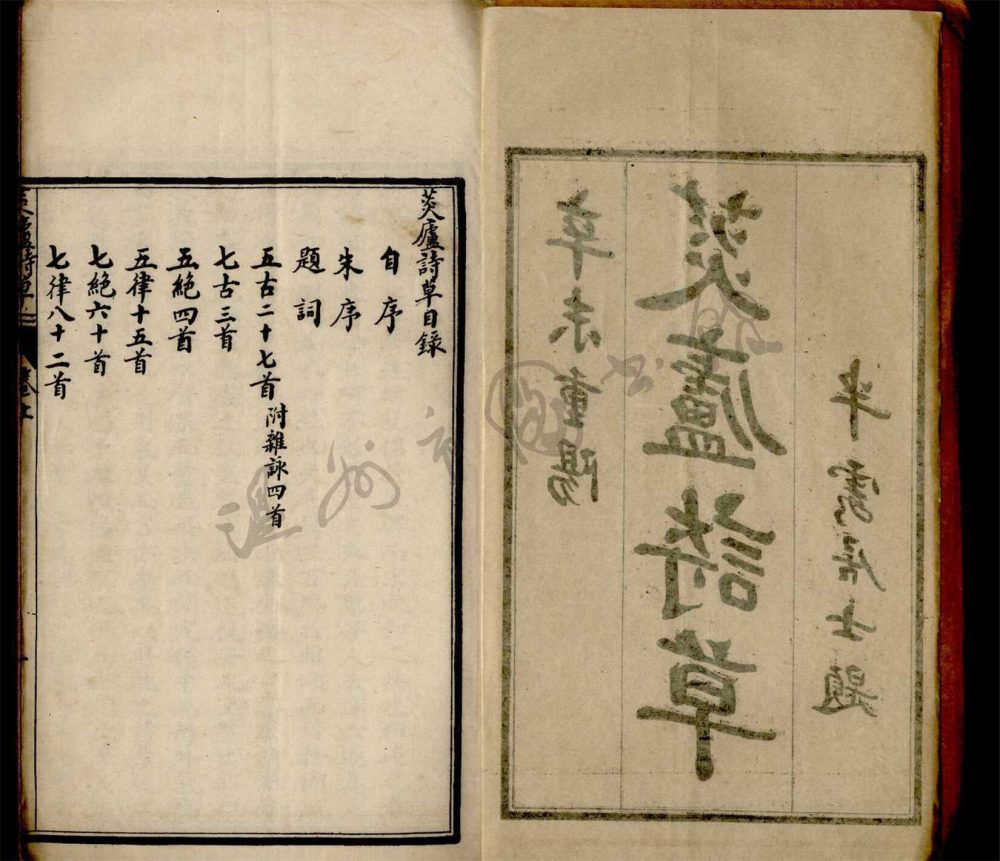 辛未重陽
菼廬詩草
半雲居士題
菼廬詩草目錄
自序
朱序
題詞
五古二十七首 附雜詠四首
七古三首
五絕四首
五律十五首
七絕六十首
七律八十二首
菼廬詩草
温州市圖书